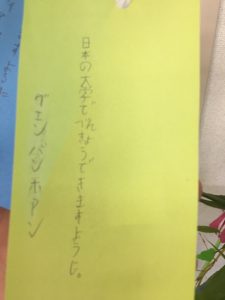 日本の大学でべんきょうできますように。
グエン バン ホアン